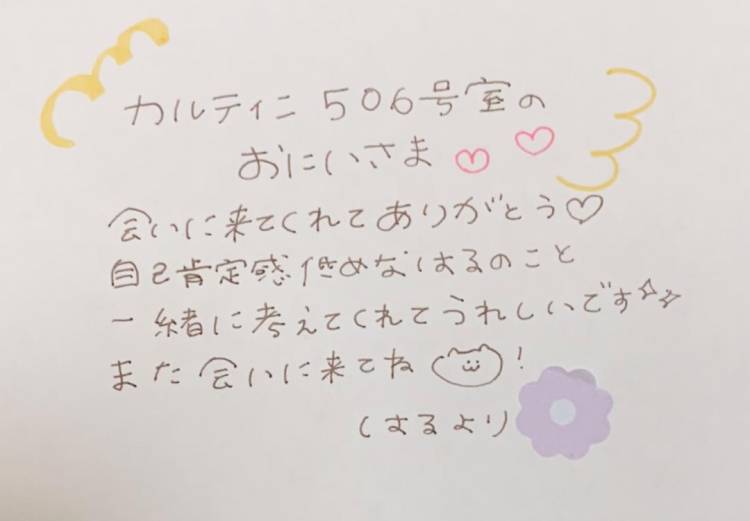 カルティニ 506号室の
おにいさま♡♡
会いに来てくれてありがとう♡
自己肯定感低めなはるのこと
一緒に考えてくれてうれしいです☆☆
また会いに来てね!
はるより